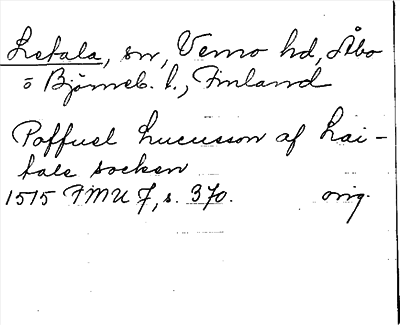 Letala, sn, Vemo hd, Åbo
o Björneb. l., Finland
Paffuel Lucusson af Lai-
tale socken
1515 FMU 7, s. 370. orig.